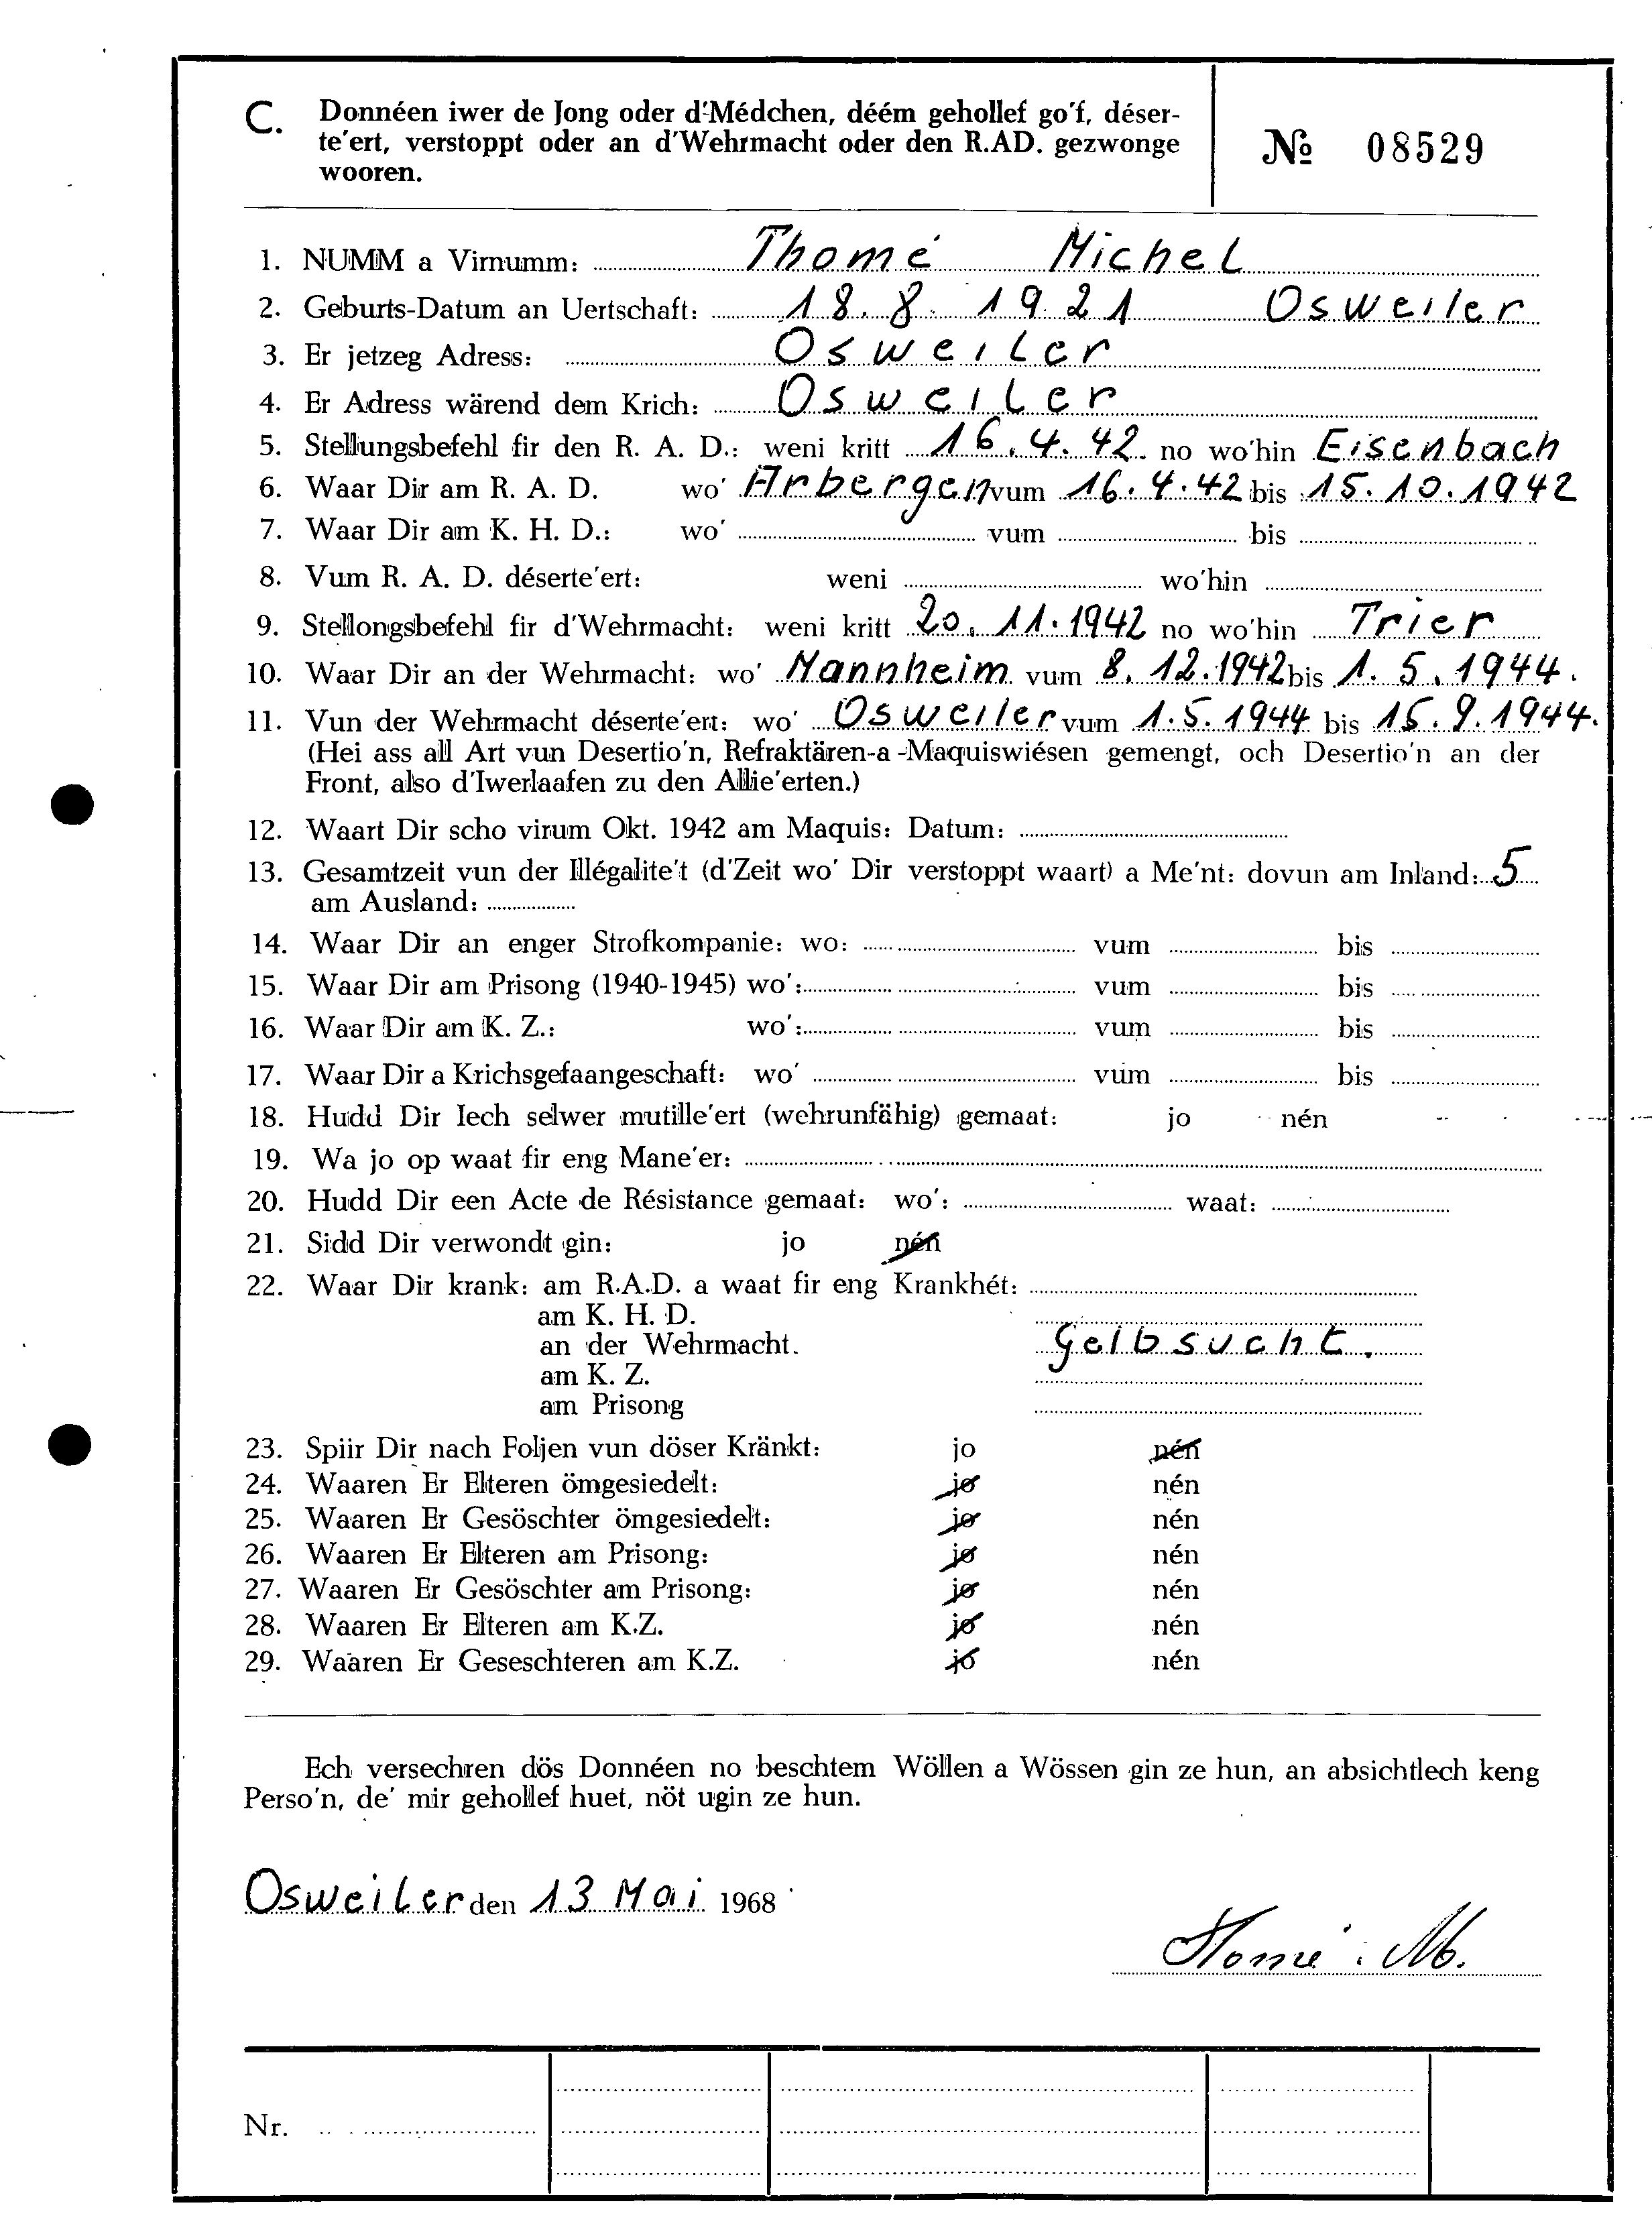 C. Donnéen iwer de Jong oder d'Médchen, déém gehollef go'f, déser-
te'ert, verstoppt oder an d'Wehrmacht oder den R.AD. gezwonge
wooren.
№ 08529
1. NUMM a Virnumm: Thomé Michel
2. Geburts-Datum an Uertschaft: 18.8.1921 Osweiler
3. Er jetzeg Adress: Osweiler
4. Er Adress wärend dem Krich: Osweiler
5. Stellungsbefehl fir den R. A. D.: weni kritt 16.4.42. no wo'hin Eisenbach
6. Waar Dir am R. A. D. wo' Arbergen vum 16.4.42 bis 15.10.1942
7. Waar Dir am K. H. D.: wo' vum bis
8. Vum R. A. D. déserte'ert: weni wo'hin
9. Stellongsbefehl fir d'Wehrmacht: weni kritt 20.11.1942 no wo'hin Trier
10. Waar Dir an der Wehrmacht: wo' Mannheim vum 8.12.1942 bis 1.5.1944.
11. Vun der Wehrmacht déserte'ert: wo' Osweiler vum 1.5.1944 bis 15.9.1944.
(Hei ass all Art vun Desertio'n, Refraktären-a-Maquiswiésen gemengt, och Desertio'n an der
Front, also d'Iwerlaafen zu den Allie'erten.)
12. Waart Dir scho virum Okt. 1942 am Maquis: Datum:
13. Gesamtzeit vun der Illégalite't (d'Zeit wo' Dir verstoppt waart) a Me'nt: dovun am Inland: 5
am Ausland:
14. Waar Dir an enger Strofkompanie: wo: vum bis
15. Waar Dir am Prisong (1940-1945) wo': vum bis
16. Waar Dir am K. Z.: wo': vum bis
17. Waar Dir a Krichsgefaangeschaft: wo' vum bis
18. Hudd Dir Iech selwer mutille'ert (wehrunfähig) gemaat: jo nén
19. Wa jo op waat fir eng Mane'er:
20. Hudd Dir een Acte de Résistance gemaat: wo': waat:
21. Sidd Dir verwondt gin: jo nén
22. Waar Dir krank: am R.A.D. a waat fir eng Krankhét:
am K. H. D.
an der Wehrmacht. Gelbsucht.
am K. Z.
am Prisong
23. Spiir Dir nach Foljen vun döser Kränkt: jo nén
24. Waaren Er Elteren ömgesiedelt: jo nén
25. Waaren Er Gesöschter ömgesiedelt: jo nén
26. Waaren Er Elteren am Prisong: jo nén
27. Waaren Er Gesöschter am Prisong: jo nén
28. Waaren Er Elteren am K.Z. jo nén
29. Waaren Er Geseschteren am K.Z. jo nén
Ech versechren dös Donnéen no beschtem Wöllen a Wössen gin ze hun, an absichtlech keng
Perso'n, de' mir gehollef huet, nöt ugin ze hun.
Osweiler den 13 Mai 1968
Thomé. M.
Nr.